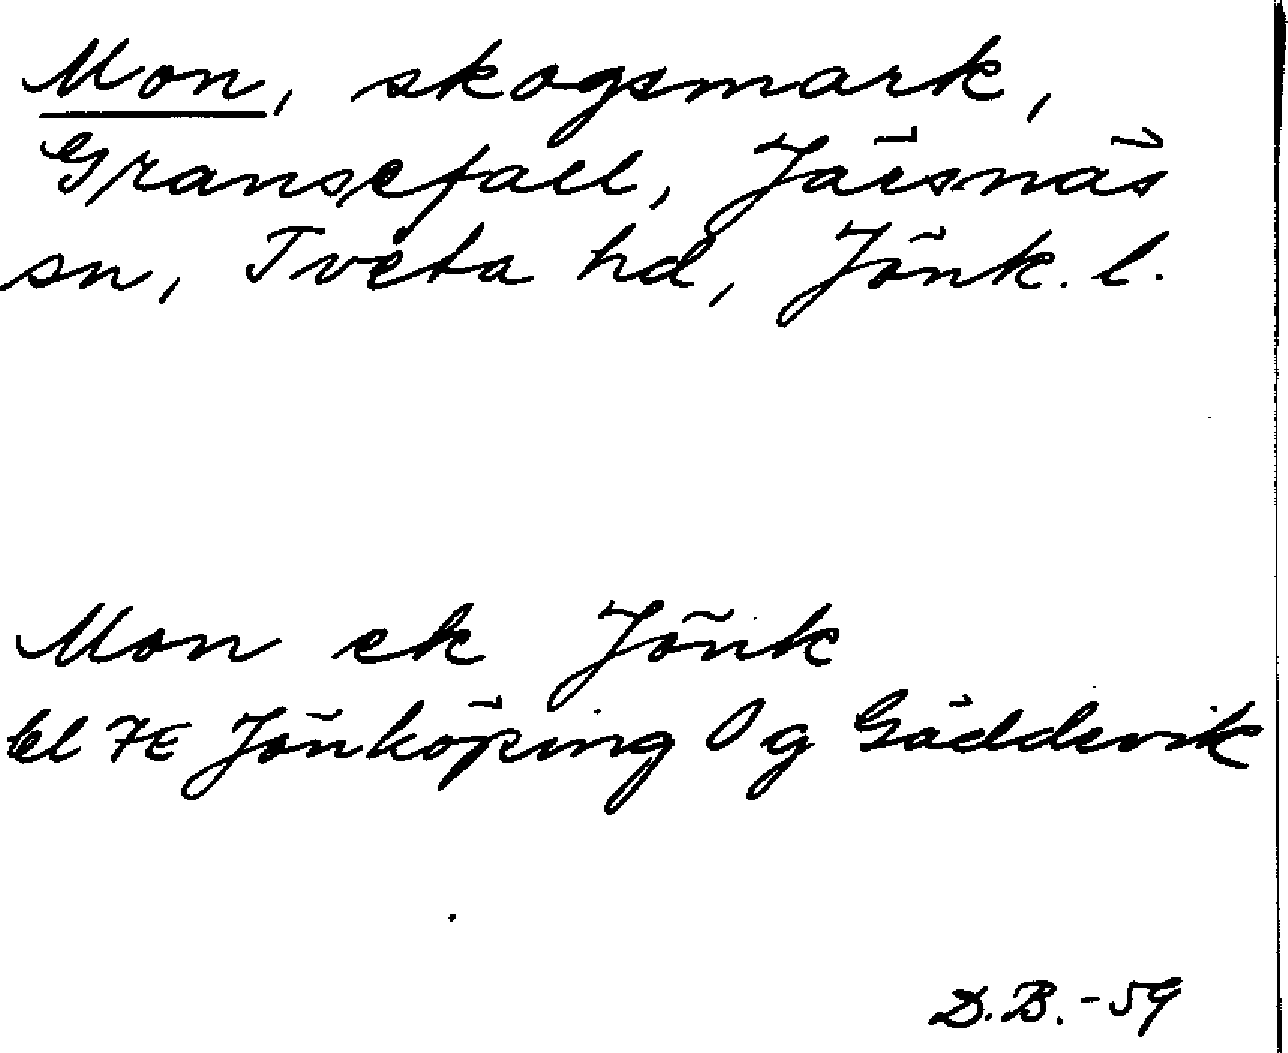 Mon, skogsmark,
Gransefall, Järsnäs
sn, Tveta hd, Jönk. l.
Mon ek Jönk
bl 7E Jönköping Og Gäddevik
D.B. -59